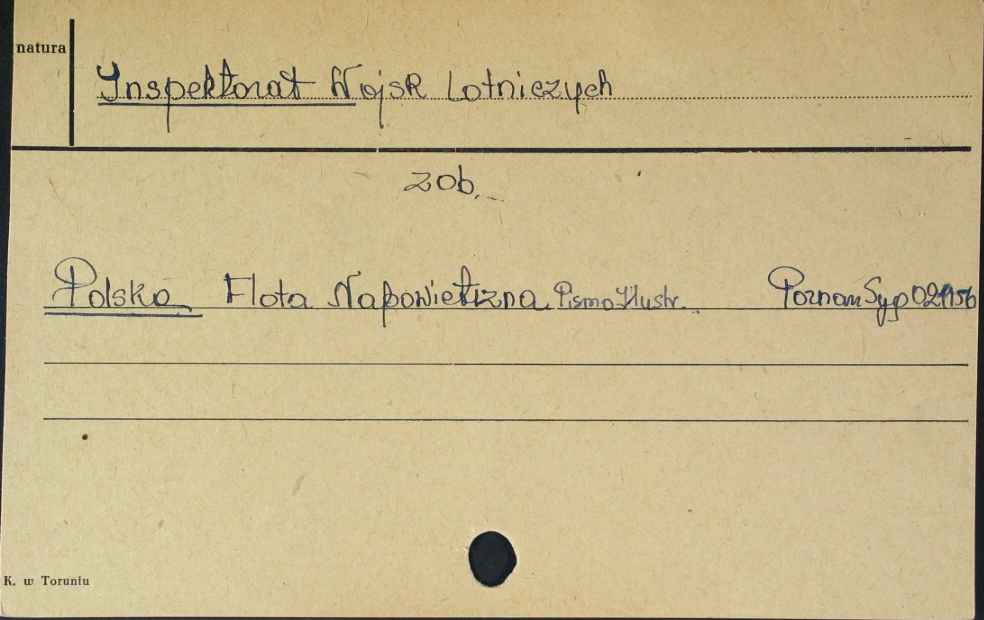 natura
Inspektorat Wojsk Lotniczych
zob.
Polska Flota Napowietrzna Pismo Ilustr. Poznań Syg 021156
K. w Toruniu